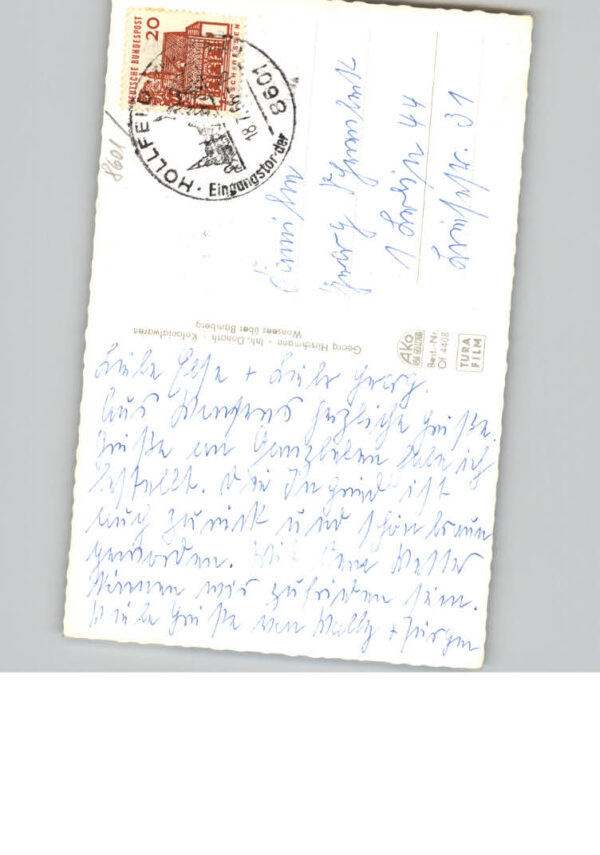 8601
DEUTSCHE BUNDESPOST
20
HESSEN
8601 HOLLFELD
18.7.
Eingangstor der
Familie
Georg
1 Berlin 44
31
Georg Hirschmann · Inh. Donath · Kolonialwaren
Wonsees über Bamberg
Ako
Best.-Nr.
Of 4408
TURA
FILM
Liebe Else + Lieber Georg.
Aus Wonsees herzliche Grüße.
Grüße an habe ich
bestellt. Die Ingrid ist
auch zurück und schön braun
geworden. Mit dem Wetter
können wir zufrieden sein.
Viele Grüße von Wally + Jürgen